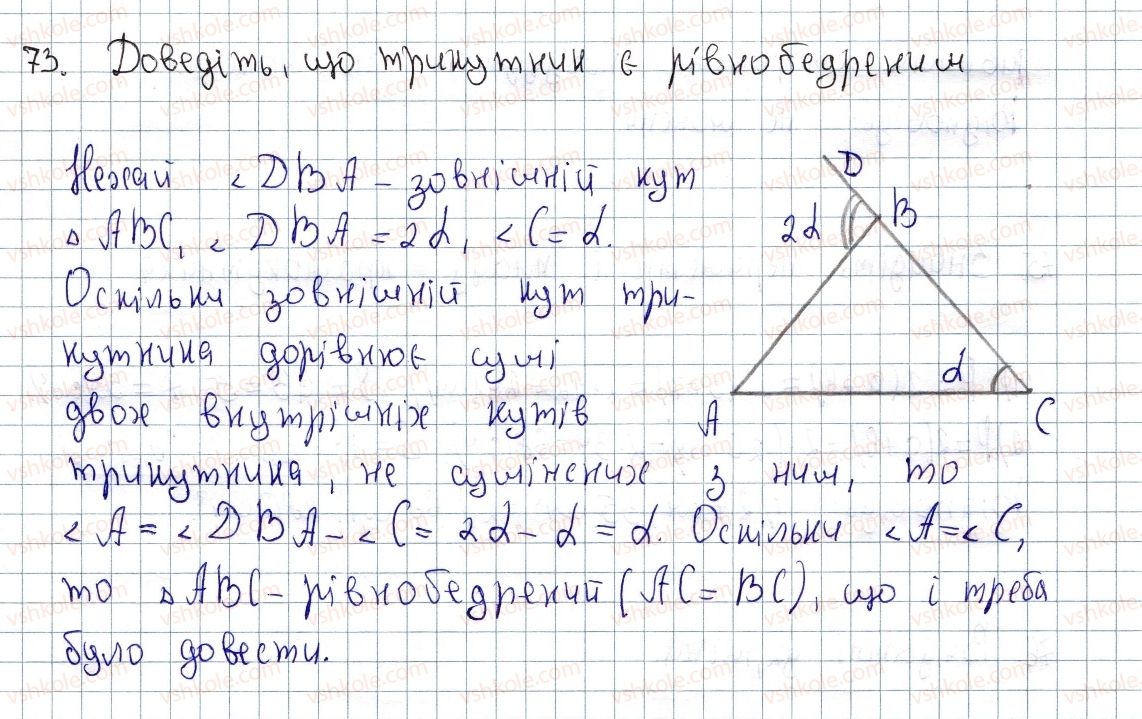 73. Доведіть, що трикутник є рівнобедреним
Нехай <DBA - зовнішній кут
△ABC, <DBA = 2α, <C = α.
Оскільки зовнішній кут три-
кутника дорівнює сумі
двох внутрішніх кутів
трикутника, не суміжених з ним, то
<A = <DBA - <C = 2α - α = α. Оскільки <A = <C,
то △ABC - рівнобедрений (AC = BC), що і треба
було довести.
D
B
2α
α
A
C
vshkole.com